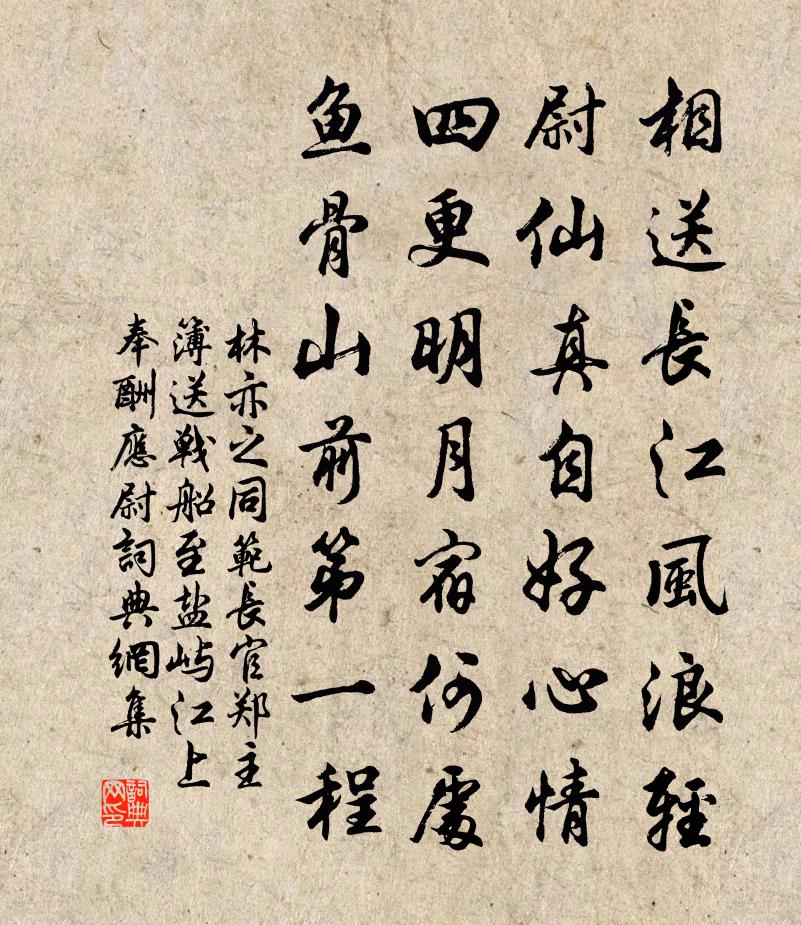 相送長江風浪輕
尉仙真自好心情
四更明月宿何處
鱼骨山前第一程
林亦之同範長官郑主
簿送戦船至盐屿江上
奉酬應尉詞典網集
詞典网印